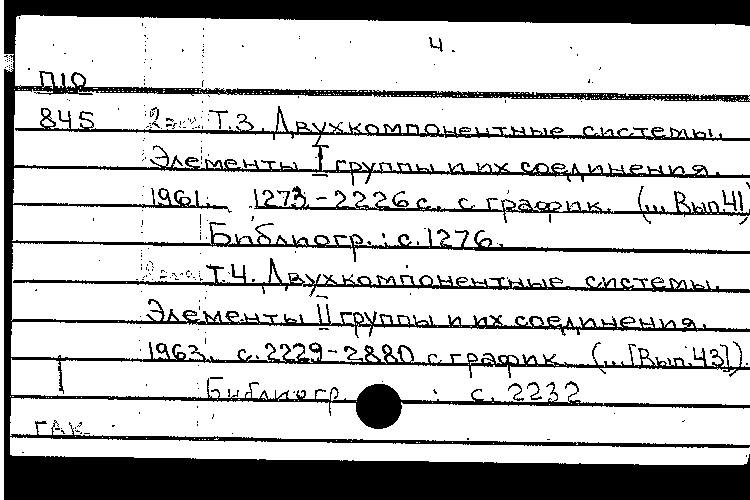 4.
П10
845 2 экз Т.3. Двухкомпонентные системы.
Элементы I группы и их соединения.
1961. 1273-2226 с. с график. (... Вып. 41)
Библиогр.: с. 1276.
2 экз Т.4. Двухкомпонентные системы.
Элементы II группы и их соединения.
1963. с. 2229-2880 с график. (... [Вып. 43]).
Библиогр. : с. 2232
ГАК